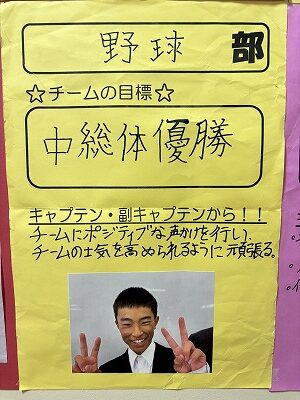 野球 部
☆チームの目標☆
中総体優勝
キャプテン・副キャプテンから！！
チームにポジティブな声かけを行い、
チームの士気を高められるように頑張る。